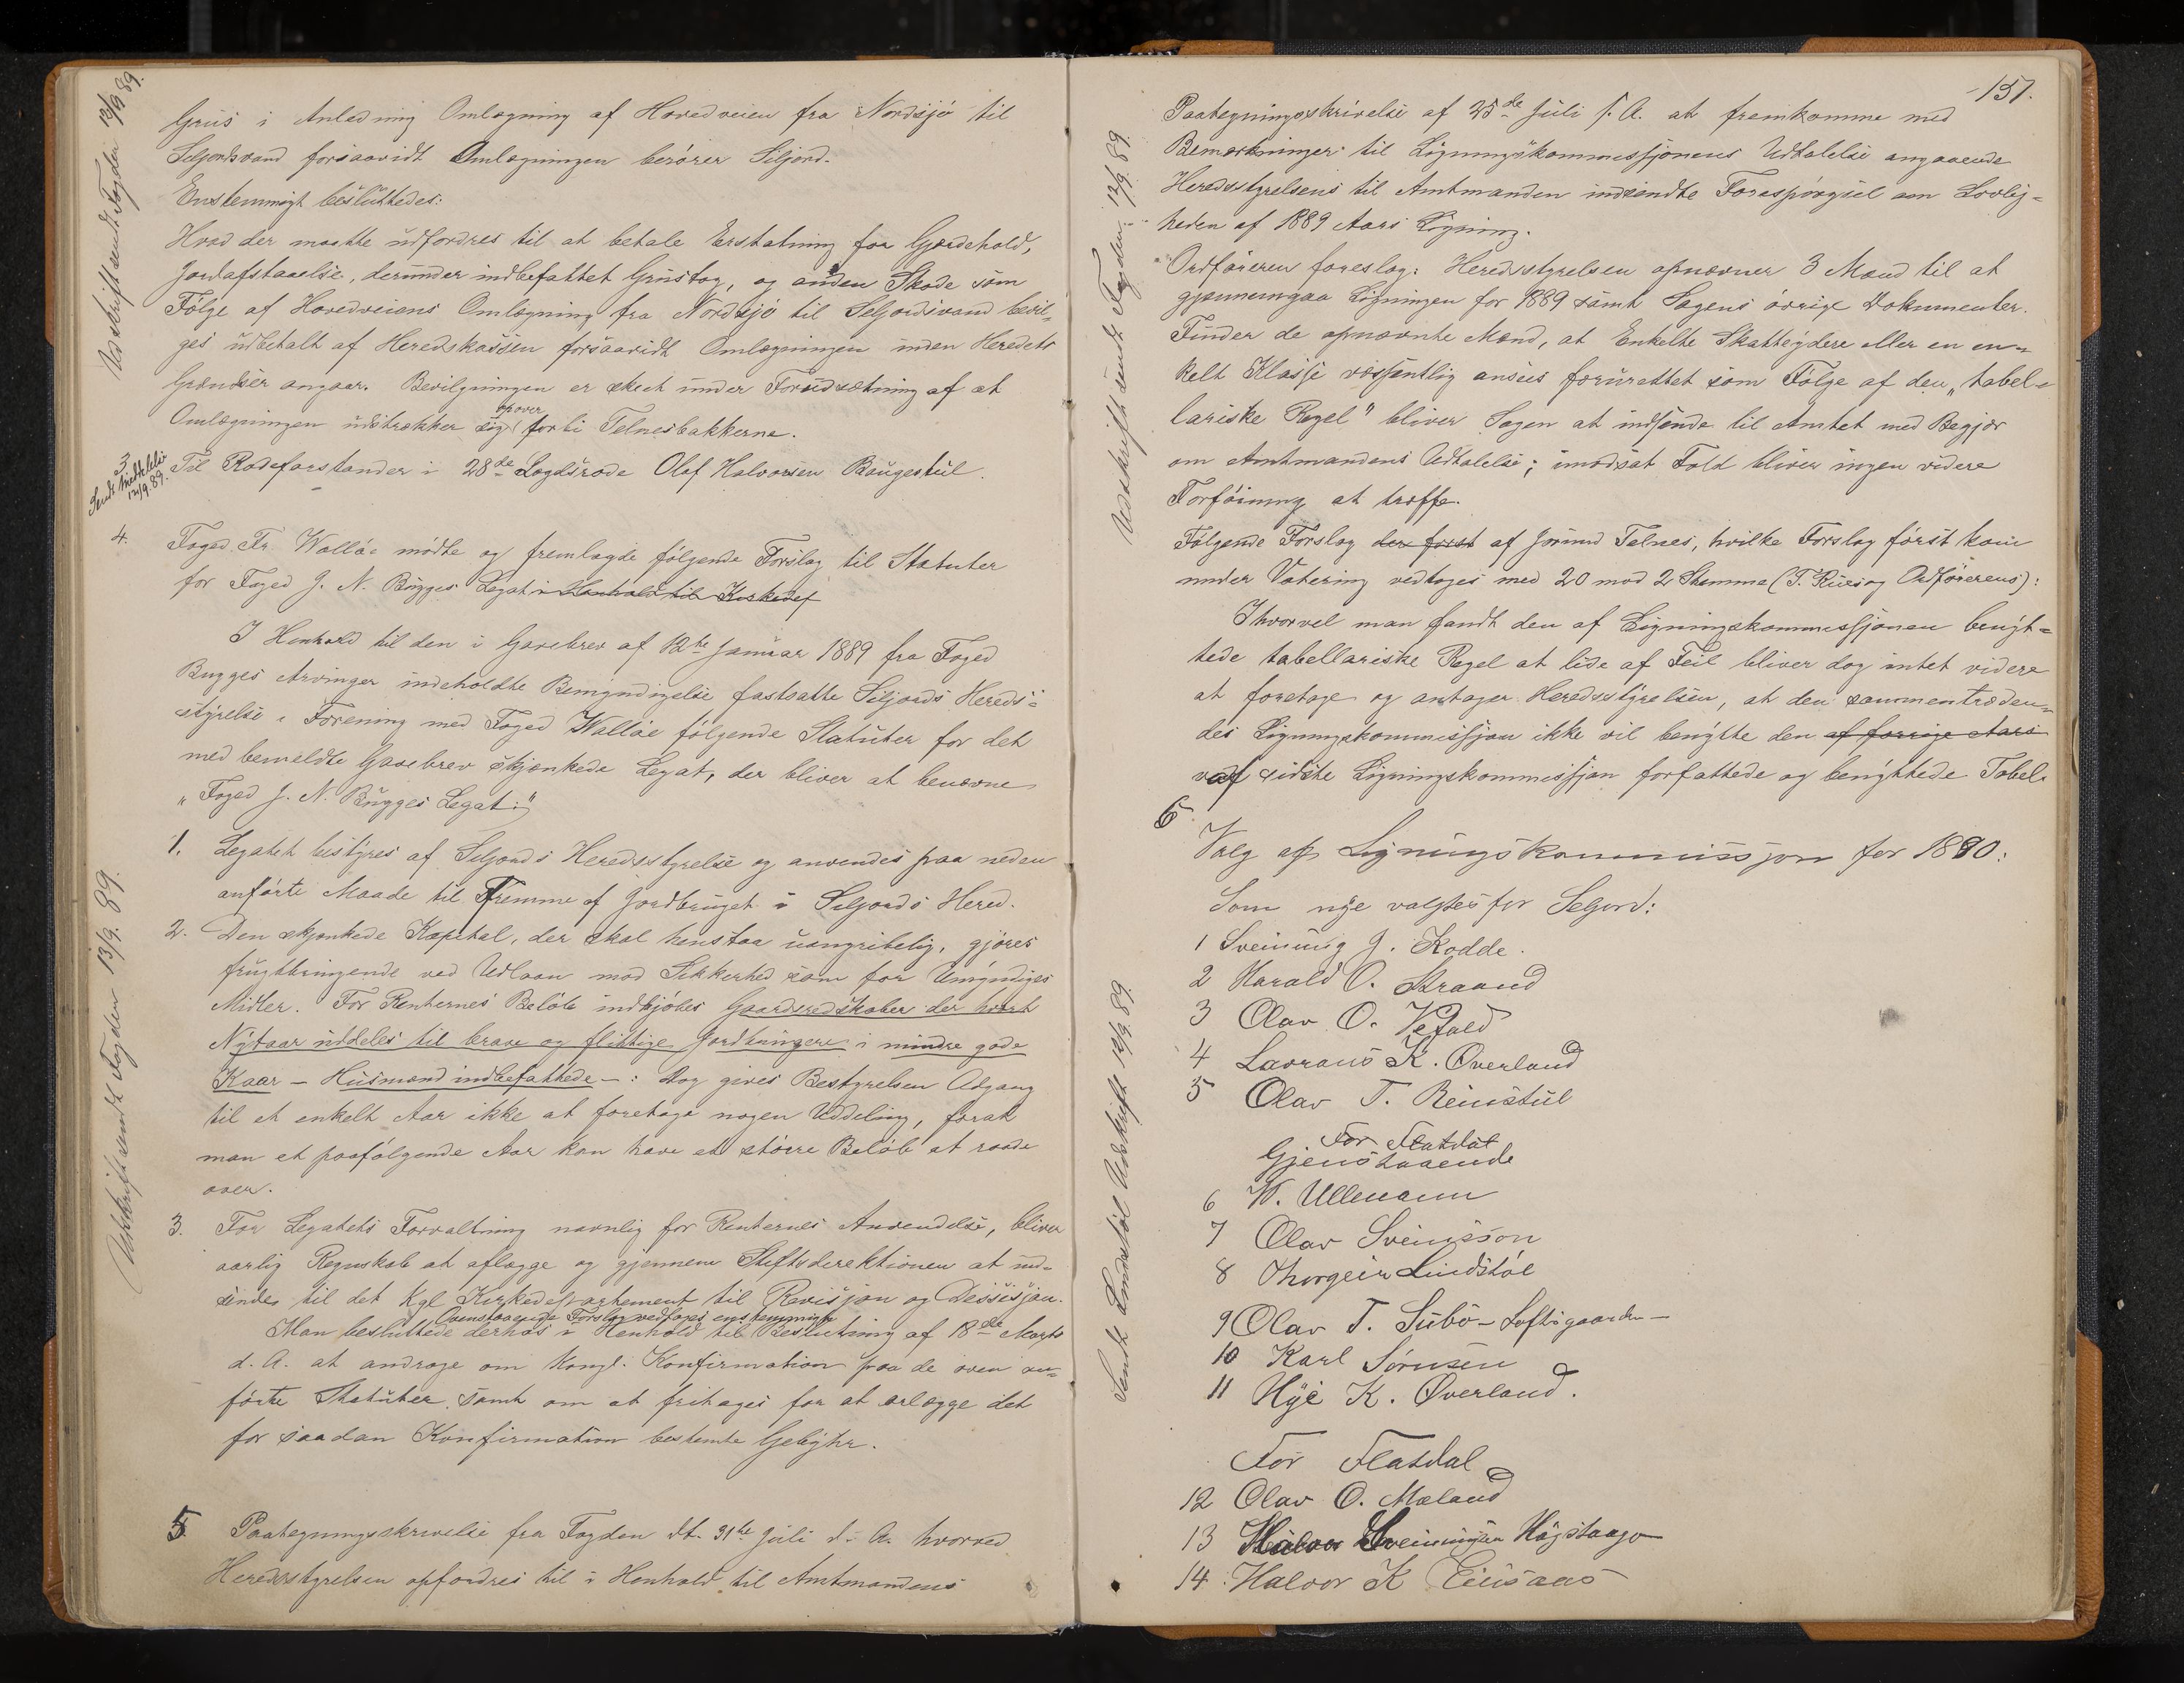 Udskrift sendt Fogden 13/9 89.
Grus i Anledning Omlægning af Hovedveien fra Nordsjö til
Seljordsvand forsaavidt Omlægningen berører Siljord.
Enstemmigt besluttedes:
Hvad der maatte udfordres til at betale Erstatning for Gjærdehold,
Jordafstaaelse, derunder indbefattet Grustag, og anden Skade som
Fölge af Hovedveiens Omlægning fra Nordsjö til Seljordsvand bevil-
ges udbetalt af Heredskassen forsaavidt Omlægningen inden Heredets
Grændser angaar. Bevilgningen er skeet under Forudsætning af at
Omlægningen udstrækker sig opover forbi Telnesbakkerne.
3
Sendt Meddelelse
12/9.89.
Til Rodeforstander i 28de Lægdsrode Olaf Halvorsen Baugestul.
4. Foged Fr Walløe mødte og fremlagde følgende Forslag til Statuter
for Foged J. N. Bugges Legat i Henhold til
I Henhold til den i Gavebrev af 12te Januar 1889 fra Foged
Bugges Arvinger indeholdte Bemyndigelse fastsatte Siljords Hereds-
styrelse i Forening med Foged Walløe følgende Statuter for det
med bemeldte Gavebrev skjænkede Legat, der bliver at benævne
"Foged J. N. Bugges Legat:"
1. Legatet bestyres af Seljords Heredsstyrelse og anvendes paa neden
anførte Maade til Fremme af Jordbruget i Seljords Hered.
Udskrift sendt Fogden 13/9. 89.
2. Den skjænkede Kapital, der skal henstaa uangribelig, gjøres
frugtbringende ved Udlaan mod Sikkerhed som for Umyndiges
Midler. For Renternes Beløb indkjøbes Gaardsredskaber der hvert
Nytaar uddeles til brave og flittige Jordbrugere i mindre gode
Kaar – Husmænd indbefattede –: Dog gives Bestyrelsen Adgang
til et enkelt Aar ikke at foretage nogen Uddeling, forat
man et paafølgende Aar kan have et større Beløb at raade
over.
3. For Legatets Forvaltning navnlig for Renternes Anvendelse, bliver
aarlig Regnskab at aflægge og gjennem Stiftsdirektionen at ind-
sendes til det Kgl Kirkedepartement til Revisjon og Dessisjon.
Ovenstaaende Forslag vedtages enstemmigt
Man besluttede derhos i Henhold til Beslutning af 18de Marts
d. A. at andrage om kongl. Konfirmation paa de oven an-
førte Statuter samt om at fritages for at erlægge det
for saadan Konfirmation bestemte Gebyhr.
5. Paategningsskrivelse fra Fogden dt. 31te Juli d. A. hvorved
Heredsstyrelsen opfordres til i Henhold til Amtmandens
157.
Udskrift sendt Fogden 12/9. 89.
Paategningsskrivelse af 25de Juli s. A. at fremkomme med
Bemærkninger til Ligningskommissjonens Udtalelse angaaende
Heredsstyrelsens til Amtmanden indsendte Forespørgsel om Lovlig-
heden af 1889 Aars Ligning.
Ordføreren foreslog: Heredsstyrelsen opnævner 3 Mænd til at
gjennemgaa Ligningen for 1889 samt Sagens øvrige Dokumenter.
Finder de opnævnte Mænd, at Enkelte Skatteydere eller en en-
kelt Klasse væsentlig ansees forurettet som Følge af den "tabel-
lariske Regel" bliver Sagen at indsende til Amtet med Begjær
om Amtmandens Udtalelse; imodsat Fald bliver ingen videre
Forføining at træffe.
Følgende Forslag der først af Jørund Telnes, hvilke Forslag først kom
under Votering vedtoges med 20 mod 2 Stemme (T. Rues og Ordførerens):
Ihvorvel man fandt den af Ligningskommissjonen benyt-
tede tabellariske Regel at lide af Feil bliver dog intet videre
at foretage og antager Heredsstyrelsen, at den sammentræden-
des Ligningskommissjon ikke vil benytte den af forrige Aars
af sidste Ligningskommissjon forfattede og benyttede Tabel.
6. Valg af Ligningskommissjon for 1890:
Som nye valgtes for Seljord:
Sendt Lindstöl Udskrift 12/9. 89.
1 Sveinung J. Kodde.
2 Harald O. Straand
3 Olav O. Vefald
4 Lavrans K. Øverland
5 Olav T. Reinstul
For Flatdal
Gjenstaaende
6 W. Ullmann
7 Olav Sveinsson
8 Thorgeir Lindstöl
9 Olav T. Subö – Loftsgaarden –
10 Karl Sørnsen
11 Hyje K. Øverland.
For Flatdal
12 Olav O. Mæland
13 Halvor Sveinungsen Høgstaago
14. Halvor K